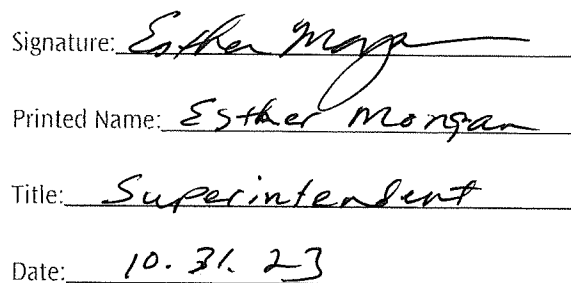 Signature: Esther Morgan
Printed Name: Esther Morgan
Title: Superintendent
Date: 10.31.23